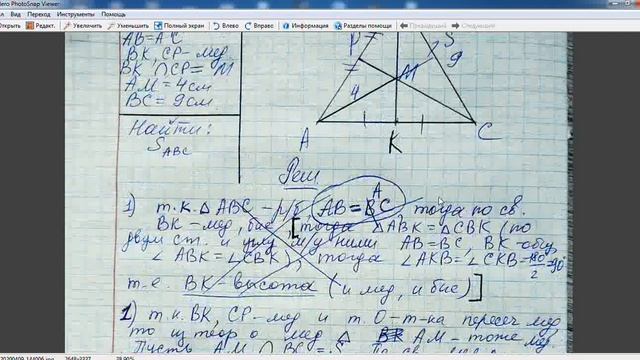 Nero PhotoSnap Viewer
Файл Переход Инструменты Помощь
Редакт. Увеличить Уменьшить Полный экран Влево Вправо Копировать Печать Разделы помощи Предыдущий Следующий
AB=AC
BK, CP-мед.
BK ∩ CP = M
AM = 4см
BC = 9см
Найти:
S ABC
P S
9
M
4
A K C
Реш
1) т.к. △ ABC – р/б, AB=BC, тогда по св.
A
BK-мед, бис, [тогда △ABK = △CBK (по
двум ст. и углу м/у ними AB=BC, BK-общ,
∠ABK=∠CBK), тогда ∠AKB=∠CKB=180/2=90°
т-е. BK-высота (и мед, и бис)]
1) т.к. BK, CP-мед и т. O-т-ка пересеч мед
то из теор о мед △ AM – тоже мед.
Пусть AM ∩ BC = S.
20200409_144006.jpg 2648x3327 28.90%